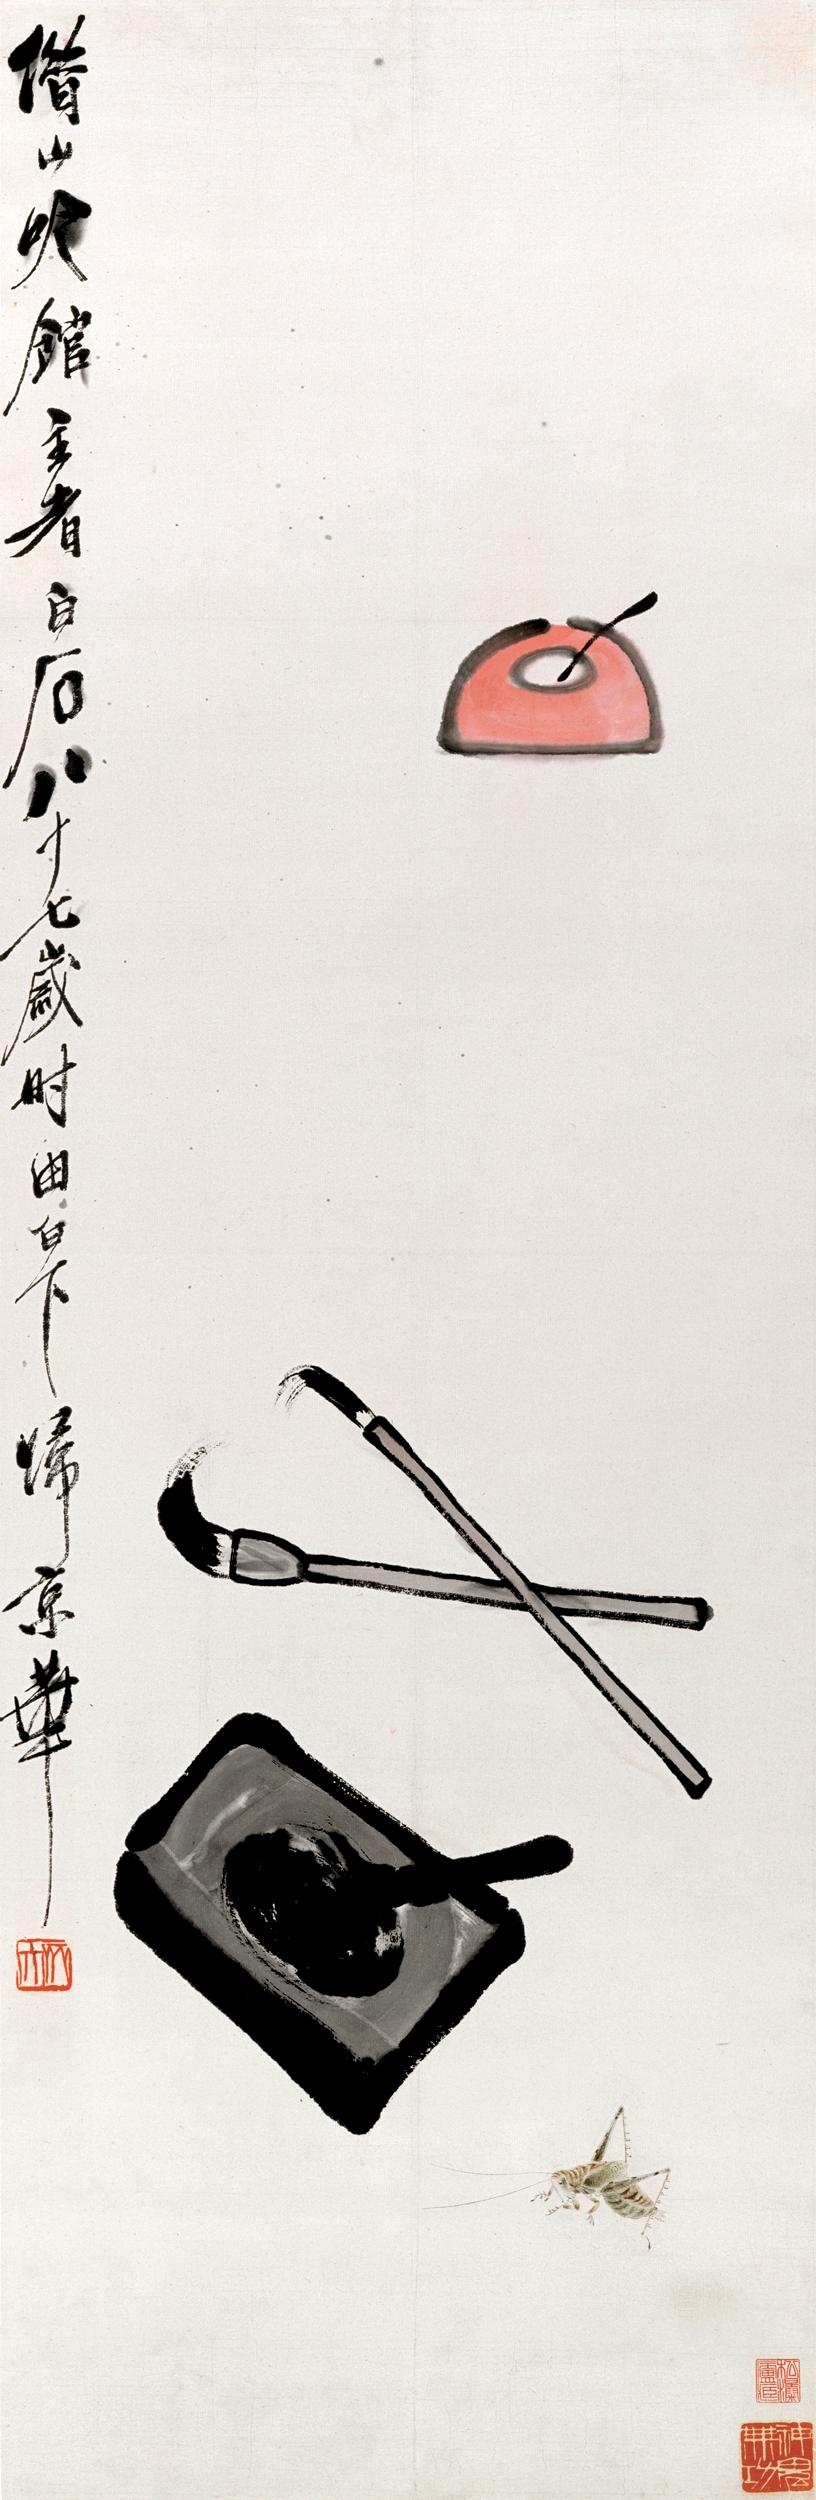 借山吟館主者白石八十七歲时由白下歸京華